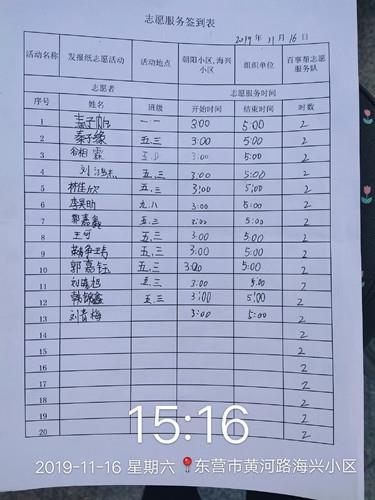 志愿服务签到表
2019年 11月 16日
活动名称 发报纸志愿活动 活动地点 朝阳小区,海兴小区 组织单位 百事帮志愿服务队
志愿者 志愿服务时间
序号 姓名 班级 开始时间 结束时间 时数
1 一.一 3:00 5:00 2
2 秦子缘 五.三 3:00 5:00 2
3 3:00 5:00 2
4 五.三 3:00 5:00 2
5 林佳欣 五.三 3:00 5:00 2
6 李昊昀 九.八 3:00 5:00 2
7 郭嘉鑫 五.三 3:00 5:00 2
8 王可 五.三 3:00 5:00 2
9 五.三 3:00 5:00 2
10 郭嘉钰 五.三 3:00 5:00 2
11 五.三 3:00 5:00 2
12 韩锦鑫 五.三 3:00 5:00 2
13 刘青梅 3:00 5:00 2
14 2
15 2
16 2
17 2
18 2
19 2
20 2
15:16
2019-11-16 星期六 东营市黄河路海兴小区